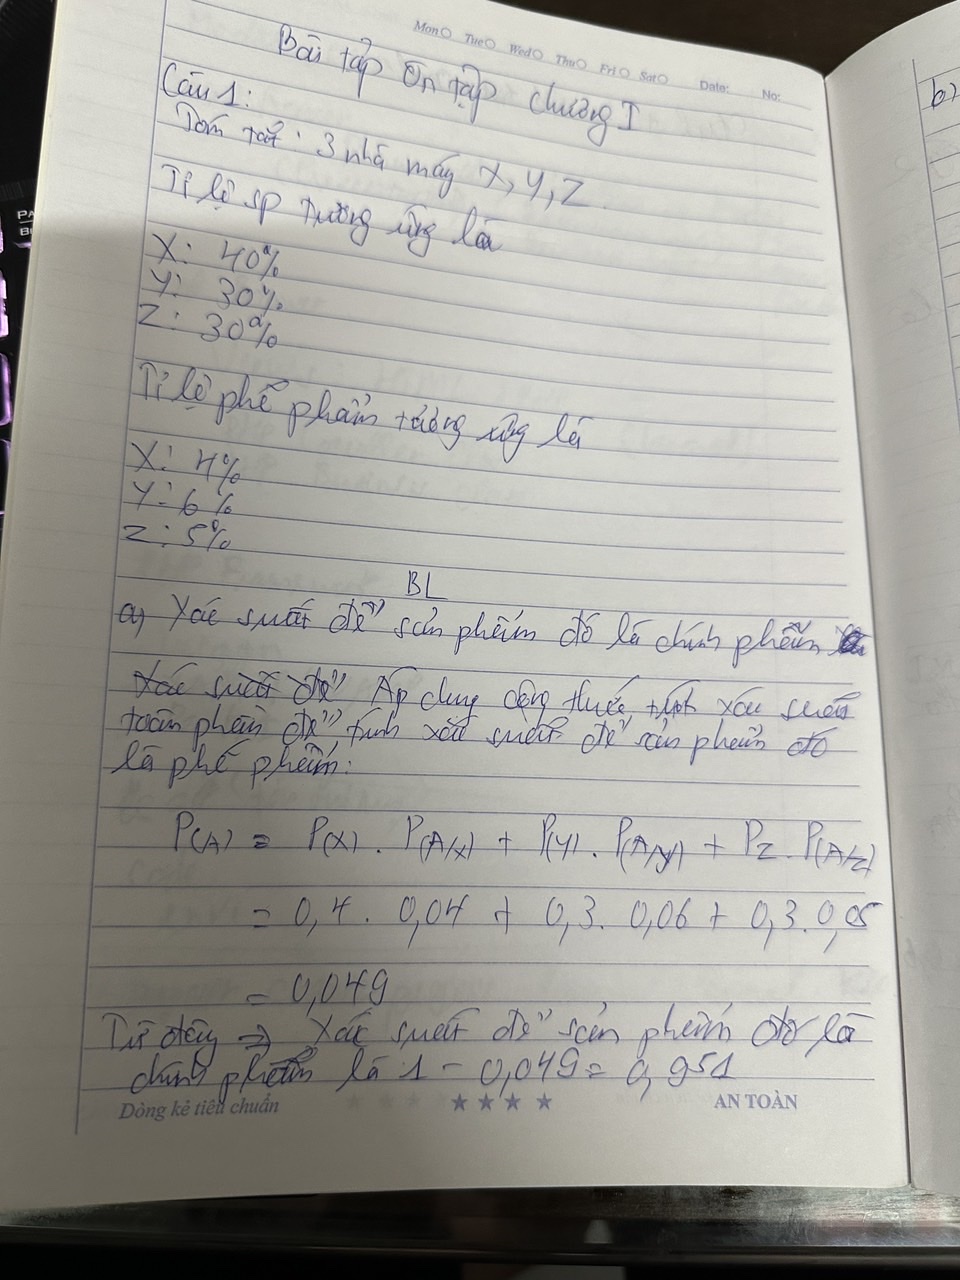 Mon○ Tue○ Wed○ Thu○ Fri○ Sat○ Date: No:
Bài tập ôn tập chương I
Câu 1:
Tóm tắt: 3 nhà máy X, Y, Z.
Tỉ lệ sp tương ứng là
X: 40%
Y: 30%
Z: 30%
Tỉ lệ phế phẩm tương ứng là
X: 4%
Y: 6%
Z: 5%
BL
a) Xác suất để sản phẩm đó là chính phẩm
Xác suất để Áp dụng công thức tính xác suất
toàn phần để tính xác suất để sản phẩm đó
là phế phẩm:
P(A) = P(X) . P(A/X) + P(Y) . P(A/Y) + PZ . P(A/Z)
= 0,4 . 0,04 + 0,3 . 0,06 + 0,3 . 0,05
= 0,049
Từ đây => Xác suất để sản phẩm đó là
chính phẩm là 1 - 0,049 = 0,951
Dòng kẻ tiêu chuẩn ★ ★ ★ ★ AN TOÀN
b)